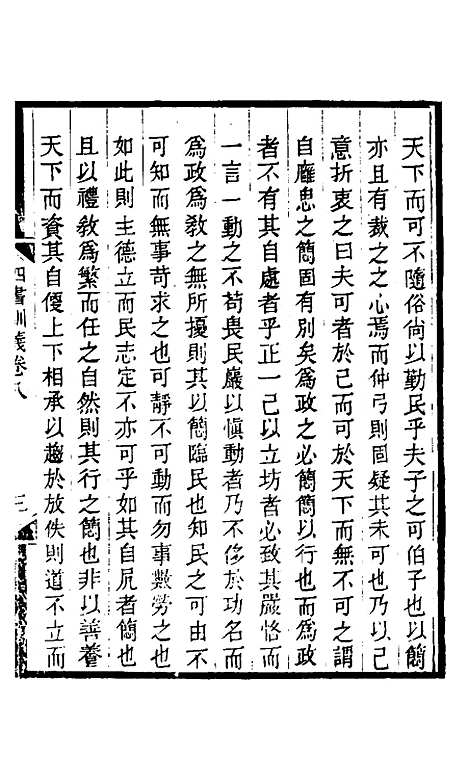 天下而可不隨俗尚以勤民乎夫子之可伯子也以簡
亦且有裁之之心焉而仲弓則固疑其未可也乃以己
意折衷之曰夫可者於己而可於天下而無不可之謂
自雍思之簡固有別矣爲政之必簡簡以行也而爲政
者不有其自處者乎正一己以立坊者必致其嚴恪而
一言一動之不苟畏民巖以愼動者乃不侈於功名而
爲政爲敎之無所擾則其以簡臨民也知民之可由不
可知而無事苛求之也可靜不可動而勿事數勞之也
如此則主德立而民志定不亦可乎如其自凥者簡也
且以禮敎爲繁而任之自然則其行之簡也非以善養
天下而資其自便上下相承以趨於放佚則道不立而
四書訓義卷八
三